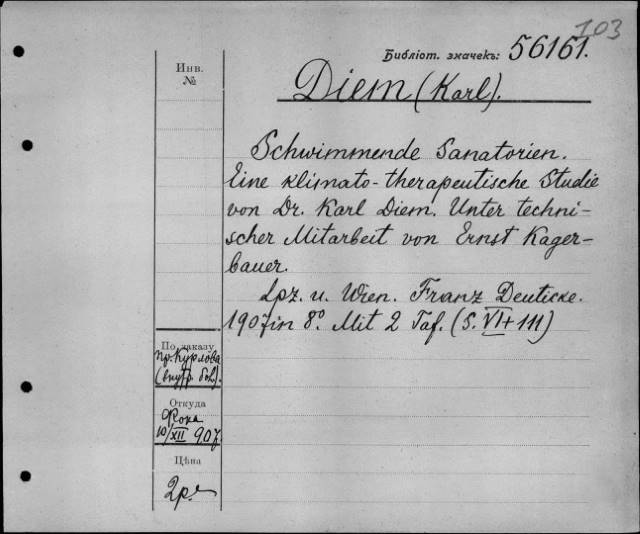 103
Библіот. значекъ: 56161.
Инв.
№
Diem (Karl).
Schwimmende Sanatorien.
Eine klimato-therapeutische Studie
von Dr. Karl Diem. Unter techni-
scher Mitarbeit von Ernst Kager-
bauer.
Lpz. u. Wien. Franz Deuticke.
1907 in 8° Mit 2 Taf. (S. VI + 111)
По заказу
пр. Курлова
(внутр. бол.).
Откуда
Фока
10/XII 907
Цѣна
2 р.